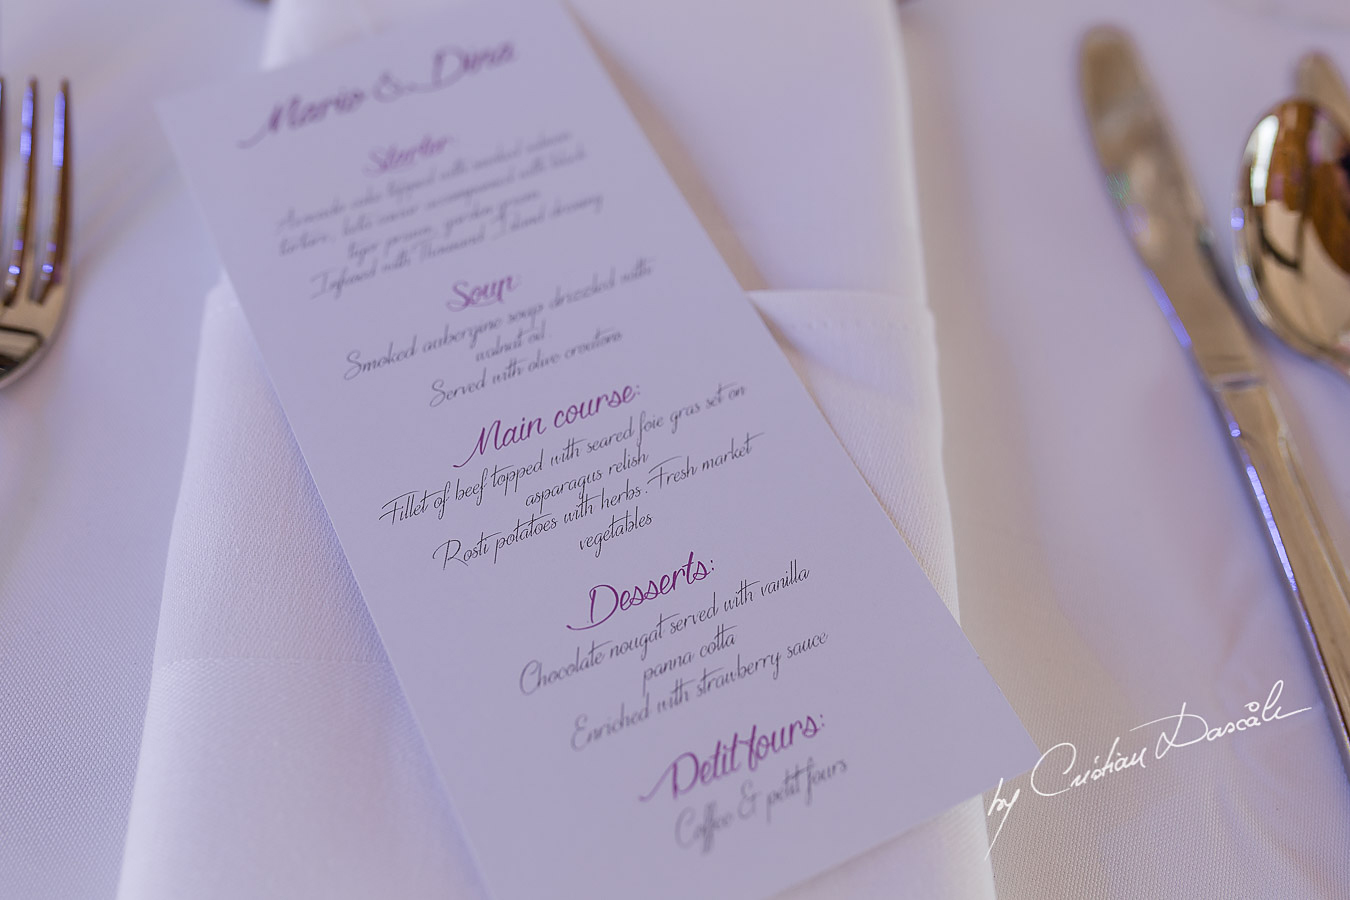 Mario & Dina
Starter
Avocado cake topped with smoked salmon
tartare, keta caviar accompanied with black
tiger prawn, garden greens
Infused with Thousand Island dressing
Soup:
Smoked aubergine soup drizzled with
walnut oil.
Served with olive croutons
Main course:
Fillet of beef topped with seared foie gras set on
asparagus relish
Rosti potatoes with herbs. Fresh market
vegetables
Desserts:
Chocolate nougat served with vanilla
panna cotta
Enriched with strawberry sauce
Petit fours:
Coffee & petit fours
by Cristian Dascălu